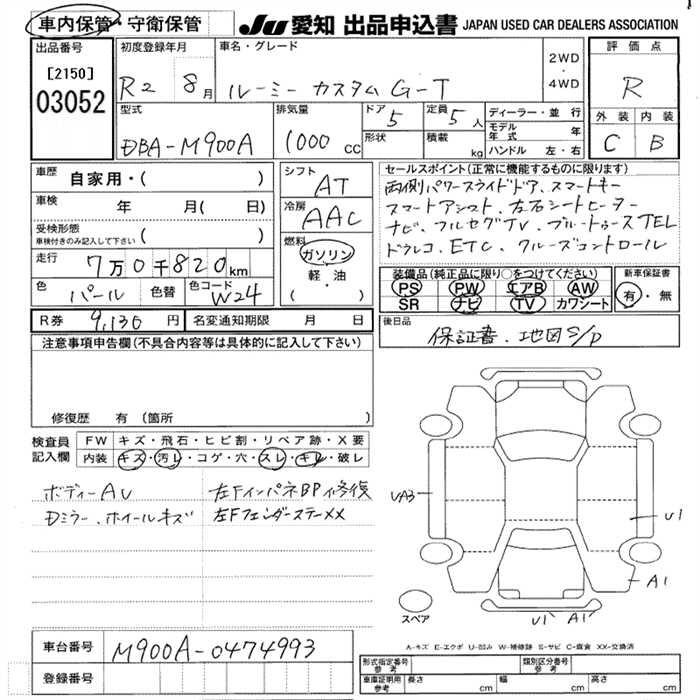 車内保管・守衛保管 JU 愛知 出品申込書 JAPAN USED CAR DEALERS ASSOCIATION
出品番号 初度登録年月 車名・グレード 評価点
[2150] R2 8月 ルーミー カスタム G-T 2WD・4WD R
03052 型式 排気量 ドア 5 定員 5人 ディーラー・並行 外装 内装
DBA-M900A 1000cc 形状 積載 kg モデル年式 年 C B
ハンドル 左・右
車歴 自家用・( ) シフト AT セールスポイント(正常に機能するものに限ります)
車検 年 月( 日) 冷房 AAC 両側パワースライドドア、スマートキー
受検形態 スマートアシスト、左右シートヒーター
車検付きのみ記入して下さい ( ) 燃料 ナビ、フルセグTV、ブルートゥースTEL
走行 7万0千820km ガソリン ドラレコ、ETC、クルーズコントロール
軽・油 装備品(純正品に限り○をつけてください) 新車保証書
色 パール 色替 色コード W24 ( ) PS PW エアB AW 有・無
SR ナビ TV カワシート
R券 9,130円 名変通知期限 月 日 後日品
保証書、地図S/D
注意事項申告欄(不具合内容等は具体的に記入して下さい)
修復歴 有(箇所 )
検査員 FW キズ・飛石・ヒビ割・リペア跡・X要
記入欄 内装 キズ・汚レ・コゲ・穴・スレ・キレ・破レ
ボディーAU 左FインパネBP修復
Dミラー、ホイールキズ 左FフェンダーステーXX
UA3
U1
A1
スペア U1 A1
A-キズ E-エクボ U-凹み W-補修跡 S-サビ C-腐食 XX-交換済
車台番号 M900A-0474993
登録番号 形式指定番号 参考 類別区分番号 参考
車庫証明用 参考 長さ cm 幅 cm 高さ cm